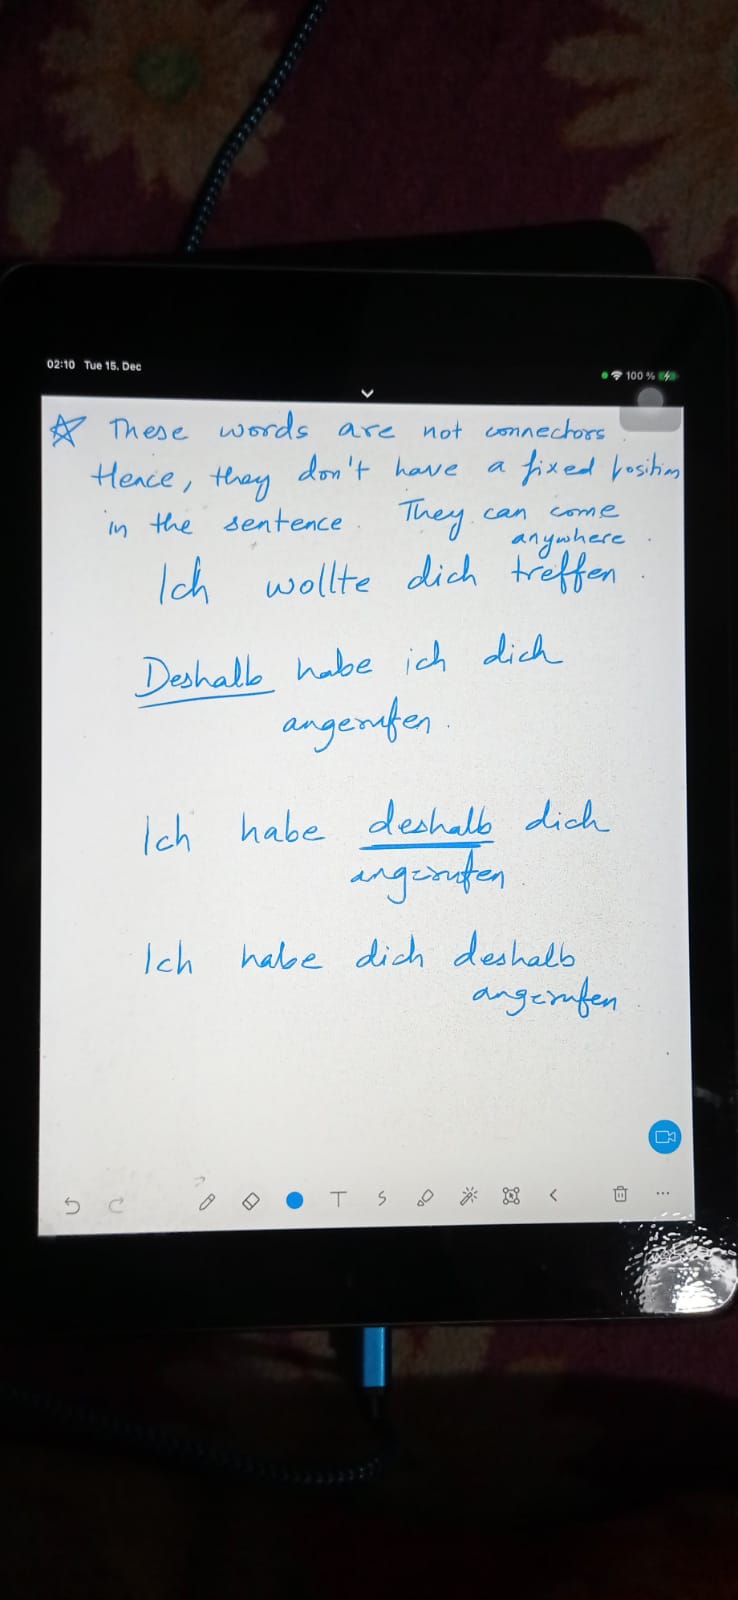 02:10 Tue 15. Dec
100 %
☆ These words are not connectors.
Hence, they don't have a fixed position
in the sentence. They can come
anywhere.
Ich wollte dich treffen.
Deshalb habe ich dich
angerufen.
Ich habe deshalb dich
angerufen.
Ich habe dich deshalb
angerufen.
T